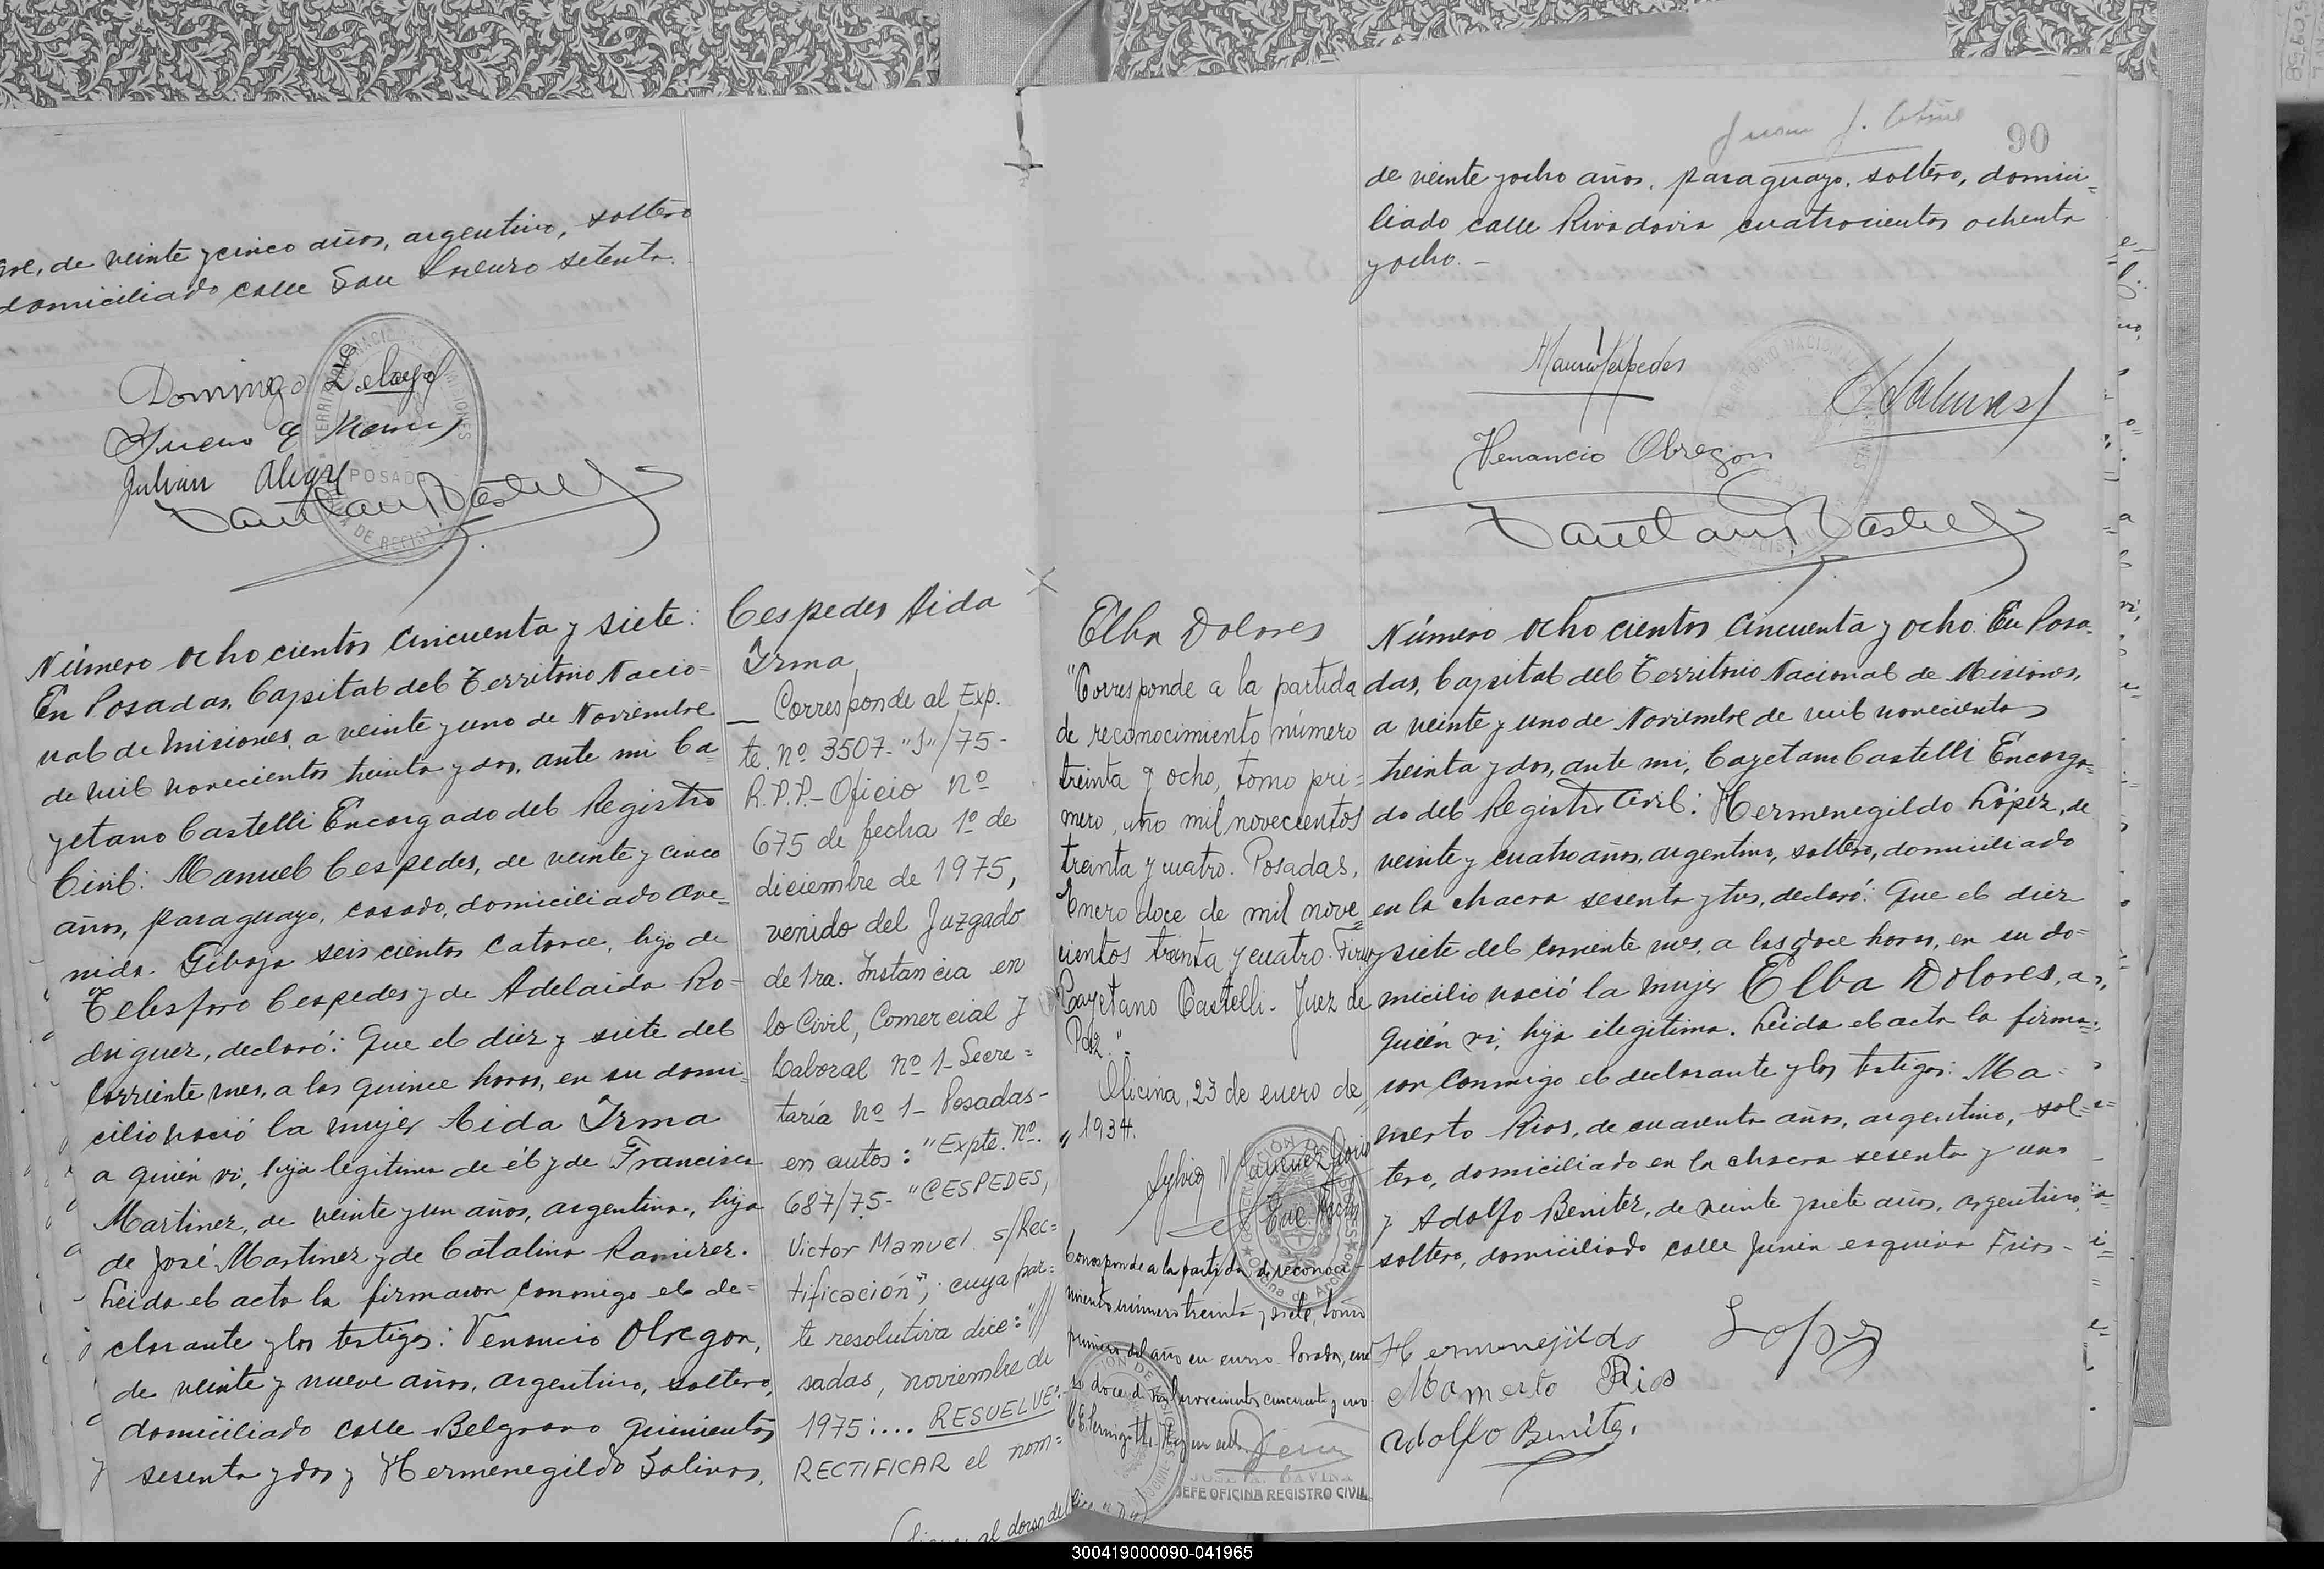 de veinte y cinco años, argentino, soltero
domiciliado calle San Lorenzo setenta.
Domingo
Julian Alegre
POSADAS
Número ochocientos cincuenta y siete:
En Posadas, Capital del Territorio Nacio=
nal de Misiones, a veinte y uno de Noviembre
de mil novecientos treinta y dos, ante mi Ca
yetano Castelli Encargado del Registro
Civil: Manuel Cespedes, de veinte y cinco
años, paraguayo, casado, domiciliado ave=
nida. Gibaja seis cientos catorce, hijo de
Telesforo Cespedes y de Adelaida Ro=
driguez, declaró: Que el diez y siete del
corriente mes, a las quince horas, en su domi=
cilio nació la mujer Aida Irma
a quién vi, hija legitima de él y de Francisca
Martinez, de veinte y un años, argentina, hija
de José Martinez y de Catalina Ramirez.
Leida el acta la firmaron conmigo el de=
clarante y los testigos: Venancio Obregon,
de veinte y nueve años, argentino, soltero,
domiciliado calle Belgrano quinientos
sesenta y dos y Hermenegildo Salinas,
Cespedes Aida
Irma
Corresponde al Exp.
te. nº 3507-"J"/75-
R.P.P.- Oficio nº
675 de fecha 1º de
diciembre de 1975,
venido del Juzgado
de 1ra. Instancia en
lo Civil, Comercial y
Laboral nº 1- Secre=
taría nº 1- Posadas-
en autos: "Expte. nº.
687/75- "CESPEDES,
Victor Manuel s/Rec=
tificación", cuya par=
te resolutiva dice: "///
sadas, noviembre de
1975:... RESUELVE:-
RECTIFICAR el nom=
al dorso de
90
de veinte y ocho años, paraguayo, soltero, domici=
liado calle Rivadavia cuatrocientos ochenta
y ocho.-
Venancio Obregon
Elba Dolores
"Corresponde a la partida
de reconocimiento número
treinta y ocho, tomo pri=
mero, año mil novecientos
treinta y cuatro. Posadas,
Enero doce de mil nove=
cientos treinta y cuatro.
Cayetano Castelli. Juez de
Paz."
Oficina, 23 de enero de
1934.
Corresponde a la partida de reconoci-
miento número treinta y siete, tomo
primero del año en curso. Posadas, ene
ro doce de mil novecientos cincuenta y uno
JOSE A. GAVINA
JEFE OFICINA REGISTRO CIVIL
Número ochocientos cincuenta y ocho. En Posa-
das, Capital del Territorio Nacional de Misiones,
a veinte y uno de Noviembre de mil novecientos
treinta y dos, ante mi, Cayetano Castelli Encarga=
do del Registro Civil: Hermenegildo López, de
veinte y cuatro años, argentino, soltero, domiciliado
en la chacra sesenta y tres, declaró: Que el diez
y siete del corriente mes, a las doce horas, en su do=
micilio nació la mujer Elba Dolores, a
quién vi, hija ilegitima. Leida el acta la firma=
ron conmigo el declarante y los testigos: Ma=
merto Rios, de cuarenta años, argentino, sol=
tero, domiciliado en la chacra sesenta y uno
y Adolfo Benitez, de veinte y siete años, argentino,
soltero, domiciliado calle Junin esquina Frias-
Hermenejildo Lopez
Mamerto Rios
Adolfo Benitez.
300419000090-041965